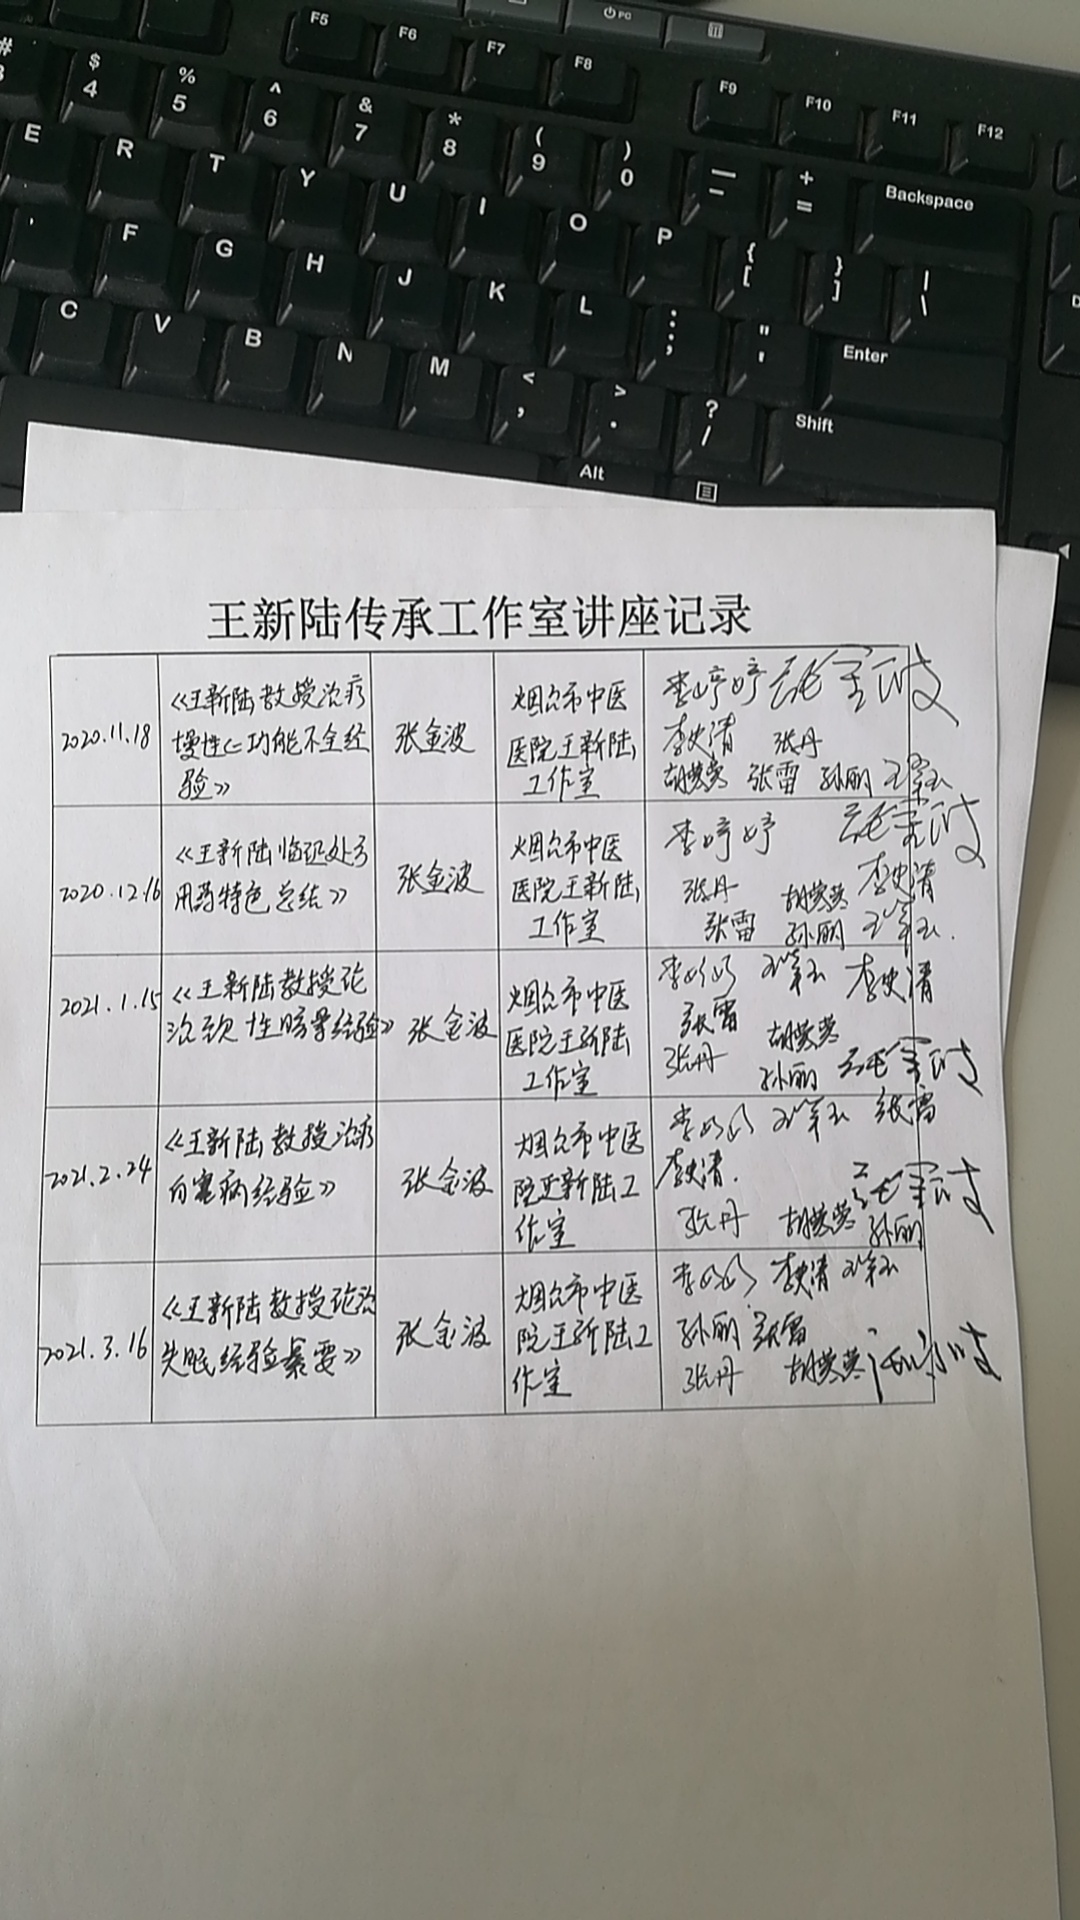 F5 F6 F7 F8 F9 F10 F11 F12
PC
# 3 $ 4 % 5 ^ 6 & 7 * 8 ( 9 ) 0 — - + = Backspace
E R T Y U I O P { [ } ] | \
F G H J K L : ; " ' Enter
C V B N M < , > . ? / Shift
Alt
王新陆传承工作室讲座记录
2020.11.18
《王新陆教授治疗
慢性心功能不全经
验》
张金波
烟台市中医
医院王新陆
工作室
李婷婷 张金波
李史清 张丹
胡英英 张雷 孙丽
2020.12.16
《王新陆临证处方
用药特色总结》
张金波
烟台市中医
医院王新陆
工作室
李婷婷 张金波
张丹 胡英英 李史清
张雷 孙丽
2021.1.15
《王新陆教授论
治 性 经验》
张金波
烟台市中医
医院王新陆
工作室
李婷婷 李史清
张雷 胡英英
张丹 孙丽 张金波
2021.2.24
《王新陆教授治疗
病经验》
张金波
烟台市中医
院王新陆工
作室
李婷婷 张雷
李史清 张金波
张丹 胡英英 孙丽
2021.3.16
《王新陆教授论治
失眠经验 要》
张金波
烟台市中医
院王新陆工
作室
李婷婷 李史清
孙丽 张雷
张丹 胡英英